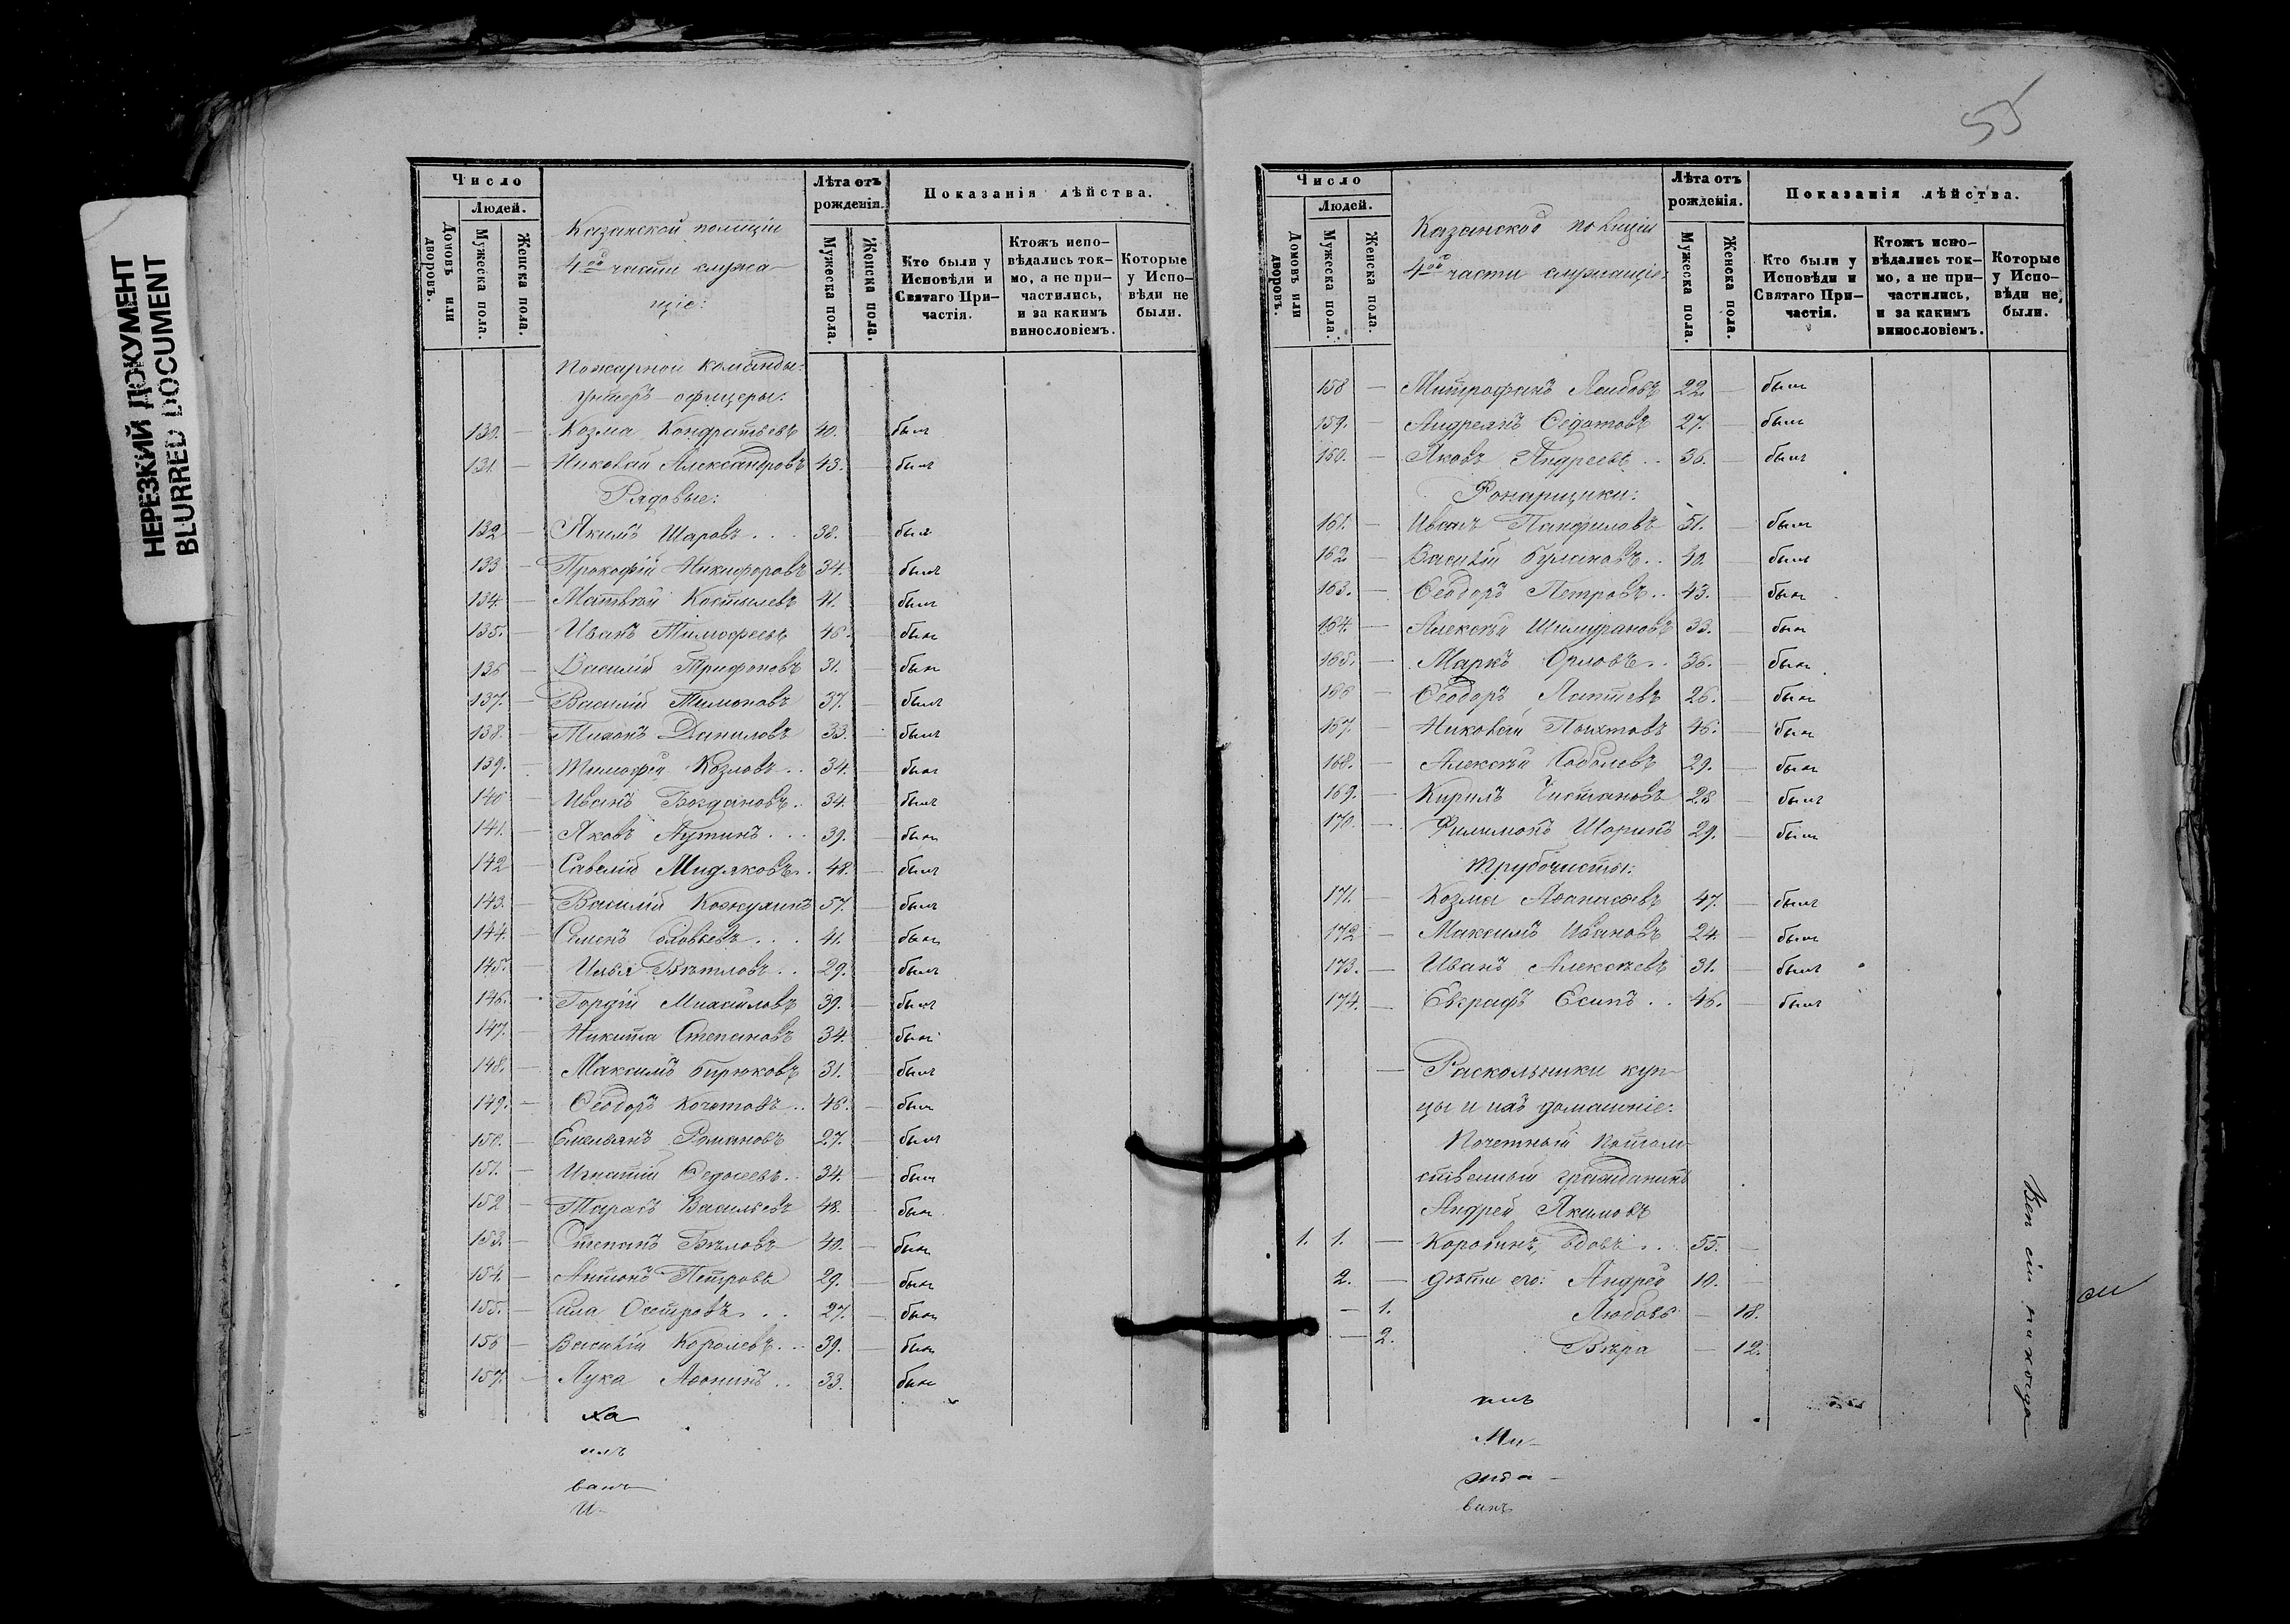 НЕРЕЗКИЙ ДОКУМЕНТ
BLURRED DOCUMENT
Число
Людей.
Домовъ или дворовъ.
Мужеска пола.
Женска пола.
Казанской полиціи
4ой части служа-
щіе:
Лѣта отъ рожденія.
Мужеска пола.
Женска пола.
Показанія дѣйства.
Кто были у Исповѣди и Святаго Причастія.
Ктожъ исповѣдались токмо, а не причастились, и за какимъ винословіемъ.
Которые у Исповѣди не были.
Пожарной команды:
Унтеръ-офицеры:
130. — Козма Кондратьевъ 40. — былъ
131. — Николай Александровъ 43. — былъ
Рядовые:
132 — Якимъ Шаровъ . . . 38. — былъ
133 — Прокофій Никифоровъ 34. — былъ
134. — Матвѣй Костылевъ 41. — былъ
135. — Иванъ Тимофеевъ 46. — былъ
136 — Василій Трифоновъ 31. — былъ
137. — Василій Тимоновъ 37. — былъ
138. — Тихонъ Даниловъ 33. — былъ
139. — Тимофей Козловъ . . 34. — былъ
140 — Иванъ Богдановъ . 34. — былъ
141. — Яковъ Путинъ . . . 39. — былъ
142 — Савелій Мидяковъ . 48. — былъ
143. — Василій Кожухинъ 57. — былъ
144. — Семенъ Соловьевъ . . . 41. — былъ
145. — Илья Вѣтловъ . . 29. — былъ
146. — Гордій Михаиловъ 39. — былъ
147. — Никита Степановъ 34. — былъ
148. — Максимъ Бирюковъ 31. — былъ
149. — Ѳеодоръ Кочетовъ . . 46. — былъ
150. — Емельянъ Романовъ 27. — былъ
151. — Игнатій Ѳедосеевъ . . 34. — былъ
152 — Тарасъ Васильевъ 48. — былъ
153. — Степанъ Бѣловъ 40. — былъ
154. — Антонъ Петровъ 29. — былъ
155. — Сила Осетровъ . . 27. — былъ
156 — Василій Королевъ . . 39. — былъ
157. — Лука Аѳонинъ . . 33. — былъ
ха
илъ
ванъ
И-
55
Число
Людей.
Домовъ или дворовъ.
Мужеска пола.
Женска пола.
Казанской полиціи
4ой части служащіе:
Лѣта отъ рожденія.
Мужеска пола.
Женска пола.
Показанія дѣйства.
Кто были у Исповѣди и Святаго Причастія.
Ктожъ исповѣдались токмо, а не причастились, и за какимъ винословіемъ.
Которые у Исповѣди не были.
158 — Митрофанъ 22. — былъ
159. — Андреянъ Ѳедотовъ 27. — былъ
160. — Яковъ Андреевъ . . 36. — былъ
Фонарщики:
161. — Иванъ Панфиловъ 51. — былъ
162 — Василій Булановъ . . 40. — былъ
163. — Ѳеодоръ Петровъ . . 43. — былъ
164. — Алексѣй 33. — былъ
165. — Маркъ Орловъ . . 36. — былъ
166 — Ѳеодоръ Лаптевъ 26. — былъ
167. — Николай 46. — былъ
168. — Алексѣй Соболевъ 29. — былъ
169. — Кирилъ Чистановъ 28 — былъ
170. — Филимонъ Шоринъ 29. — былъ
Трубочисты:
171. — Козма Аѳанасьевъ 47. — былъ
172 — Максимъ Ивановъ 24. — былъ
173. — Иванъ Алексѣевъ 31. — былъ
174. — Евграфъ Есинъ . . 46. — былъ
— Раскольники куп-
цы и ихъ домашніе:
Почетный Потом-
ственный гражданинъ
Андрей Якимовъ
1. 1. — Коровинъ, вдовъ . . 55. —
2. — дѣти его: Андрей 10. —
— 1. Любовь — 18.
— 2. Вѣра — 12.
Всѣ сіи никогда
илъ
Ми-
ванъ